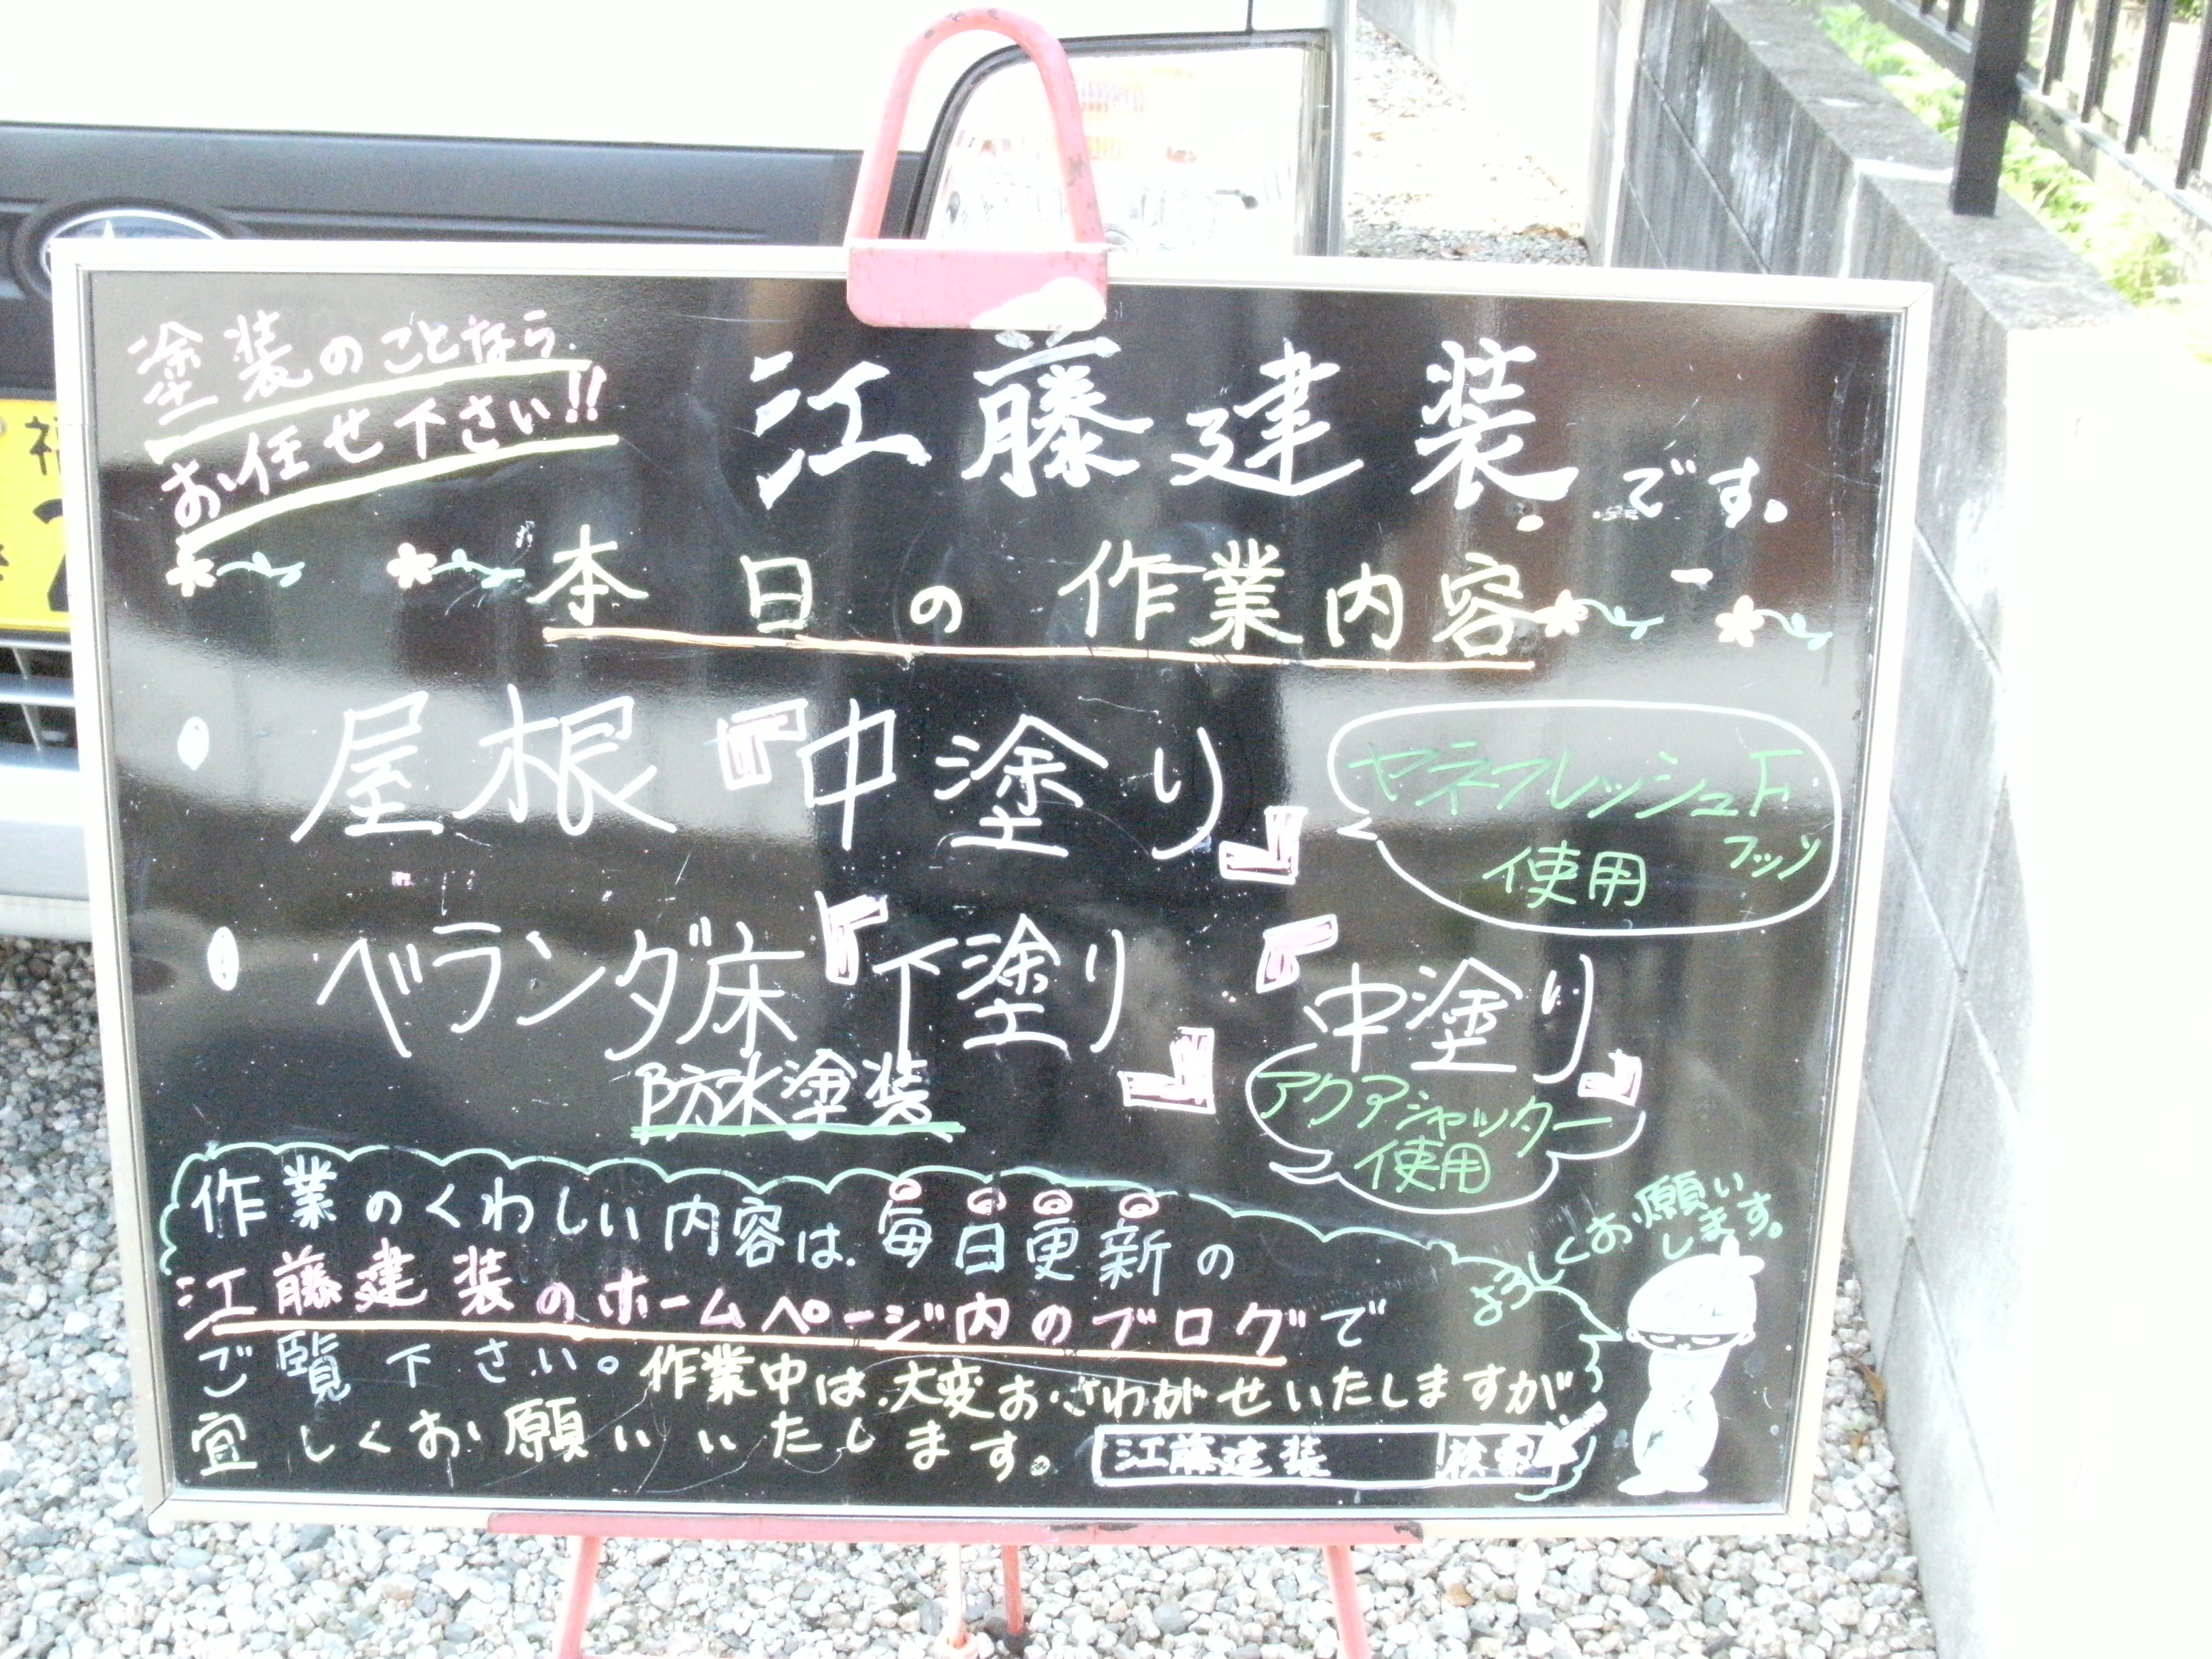 塗装のことなら
お任せ下さい!!
江藤建装です。
本日の作業内容
・屋根『中塗り』
ヤネフレッシュF
フッソ
使用
・ベランダ床『下塗り』『中塗り』
防水塗装
アクアシャッター
使用
作業のくわしい内容は毎日更新の
江藤建装のホームページ内のブログで
ご覧下さい。作業中は大変おさわがせいたしますが
宜しくお願いいたします。
江藤建装 検索
よろしくお願い
します。